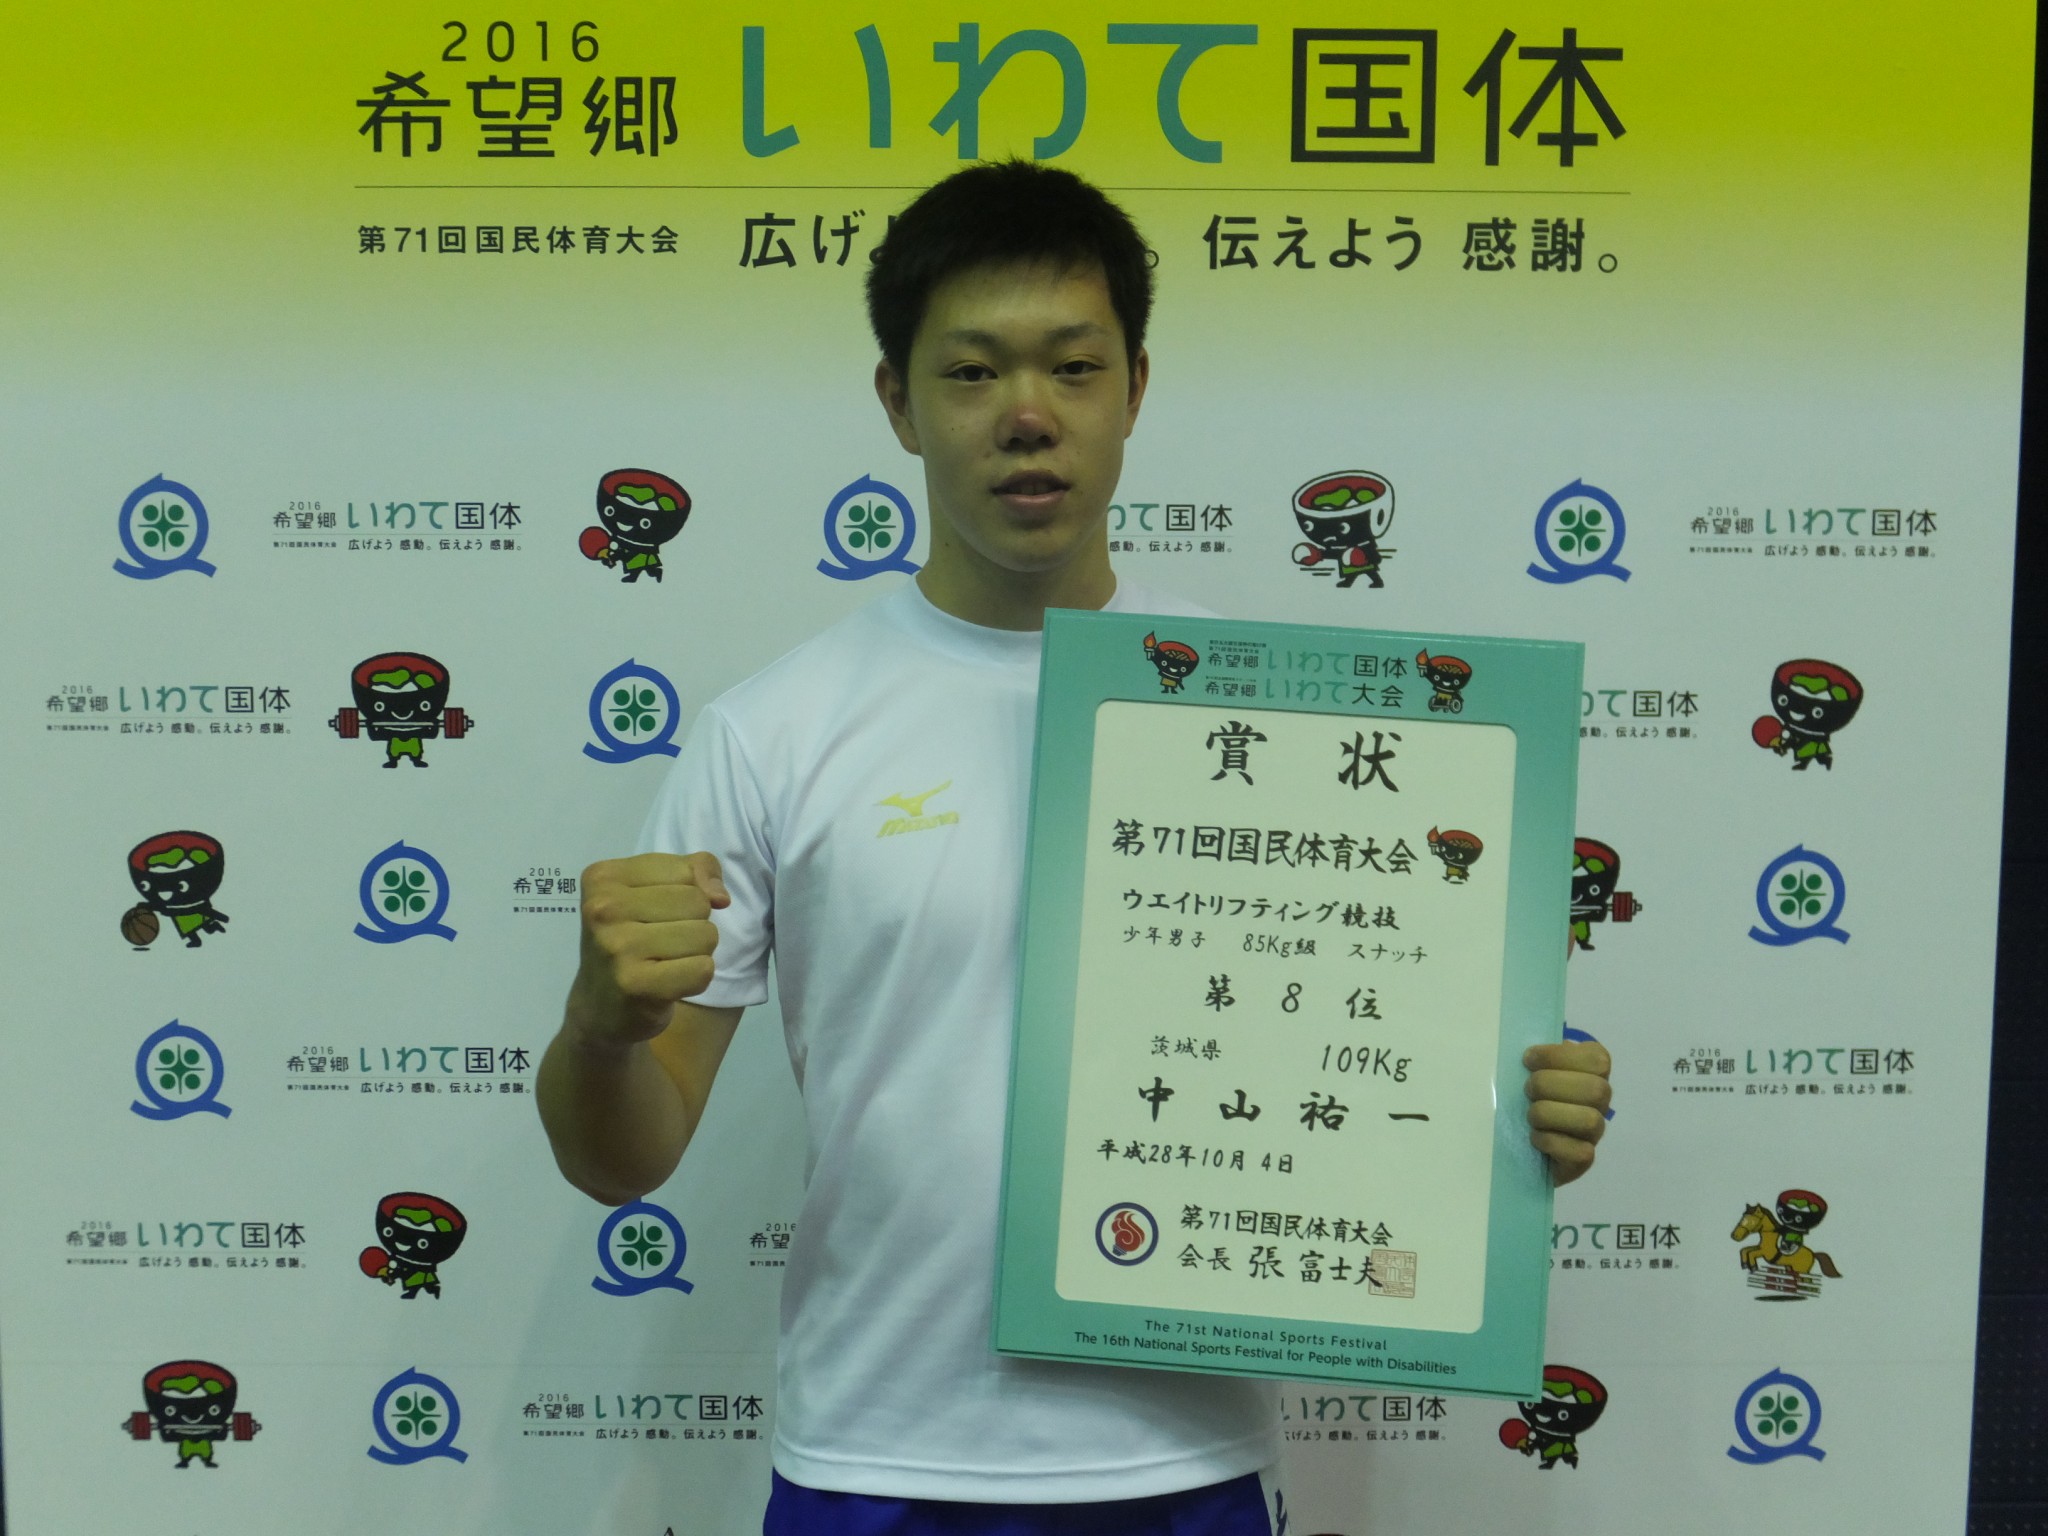 2016
希望郷 いわて国体
第71回国民体育大会 広げよ 。伝えよう 感謝。
2016
希望郷 いわて国体
第71回国民体育大会 広げよう 感動。伝えよう 感謝。
わて国体
広げよう 感動。伝えよう 感謝。
2016
希望郷 いわて国体
第71回国民体育大会 広げよう 感動。伝えよう 感謝。
2016
希望郷 いわて国体
第71回国民体育大会 広げよう 感動。伝えよう 感謝。
わて国体
感動。伝えよう 感謝。
2016
希望郷
第71回国民体育大会
2016
希望郷 いわて国体
第71回国民体育大会 広げよう 感動。伝えよう 感謝。
2016
希望郷 いわて国体
第71回国民体育大会 広げよう 感動。伝えよう 感謝。
2016
希望郷 いわて国体
第71回国民体育大会 広げよう 感動。伝えよう 感謝。
2016
希望
わて国体
感動。伝えよう 感謝。
2016
希望郷 いわて国体
第71回国民体育大会 広げよう 感動。伝えよう 感謝。
いわて国体
広げよう 感動。伝えよう 感謝。
mizuno
希望郷 いわて国体
希望郷 いわて大会
賞状
第71回国民体育大会
ウエイトリフティング競技
少年男子 85Kg級 スナッチ
第8位
茨城県 109Kg
中山祐一
平成28年10月4日
第71回国民体育大会
会長 張富士夫
The 71st National Sports Festival
The 16th National Sports Festival for People with Disabilities